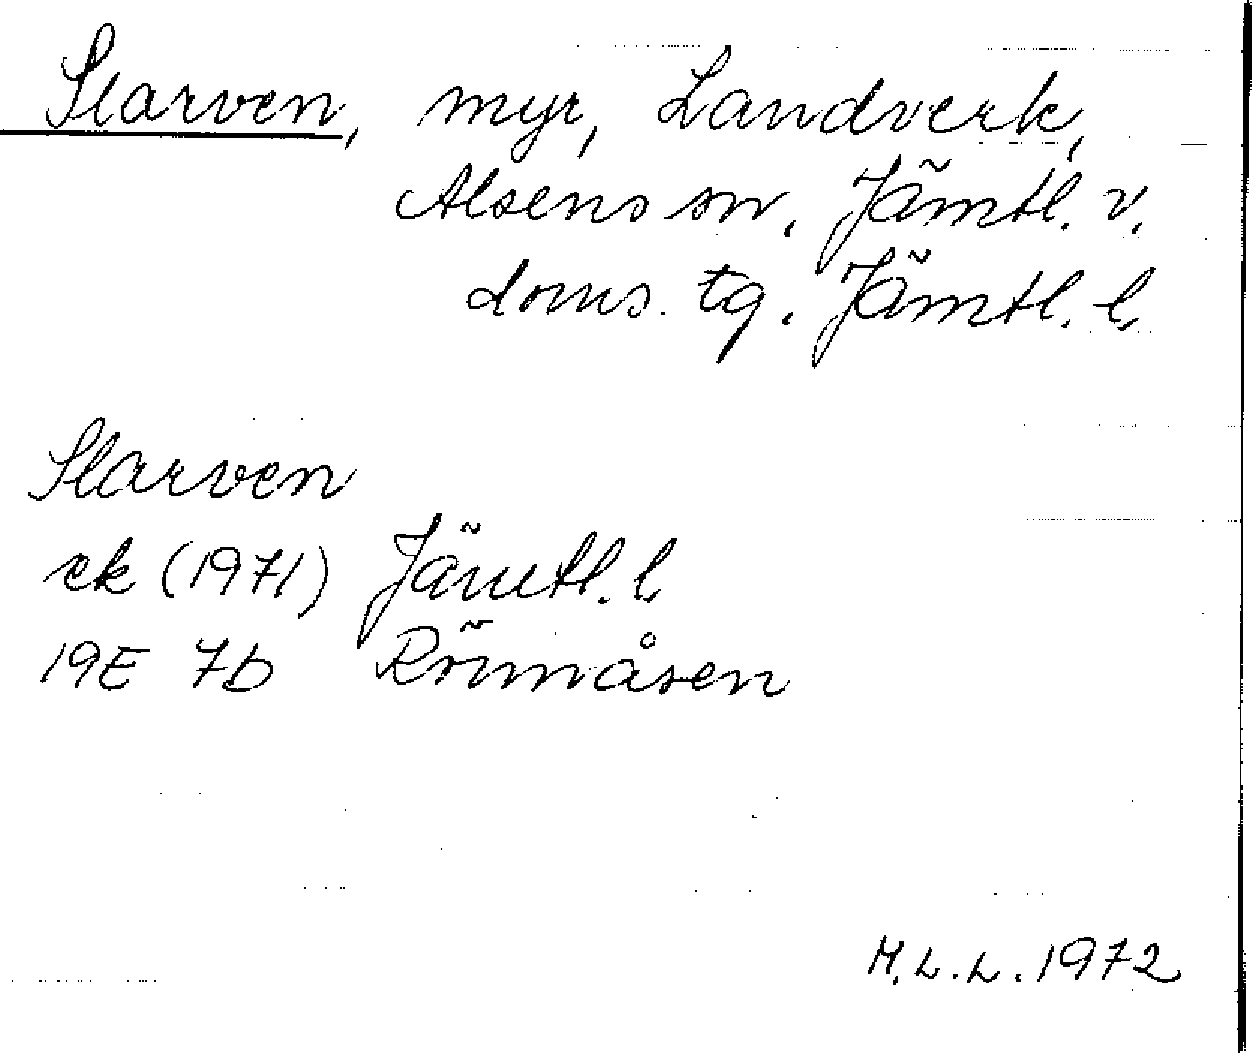 Slarven, myr, Landverk,
Alsens sn. Jämtl. v.
doms. tg. Jämtl. l.
Slarven
ek (1971) Jämtl. l
19E 7b Rönnåsen
M.L.L. 1972